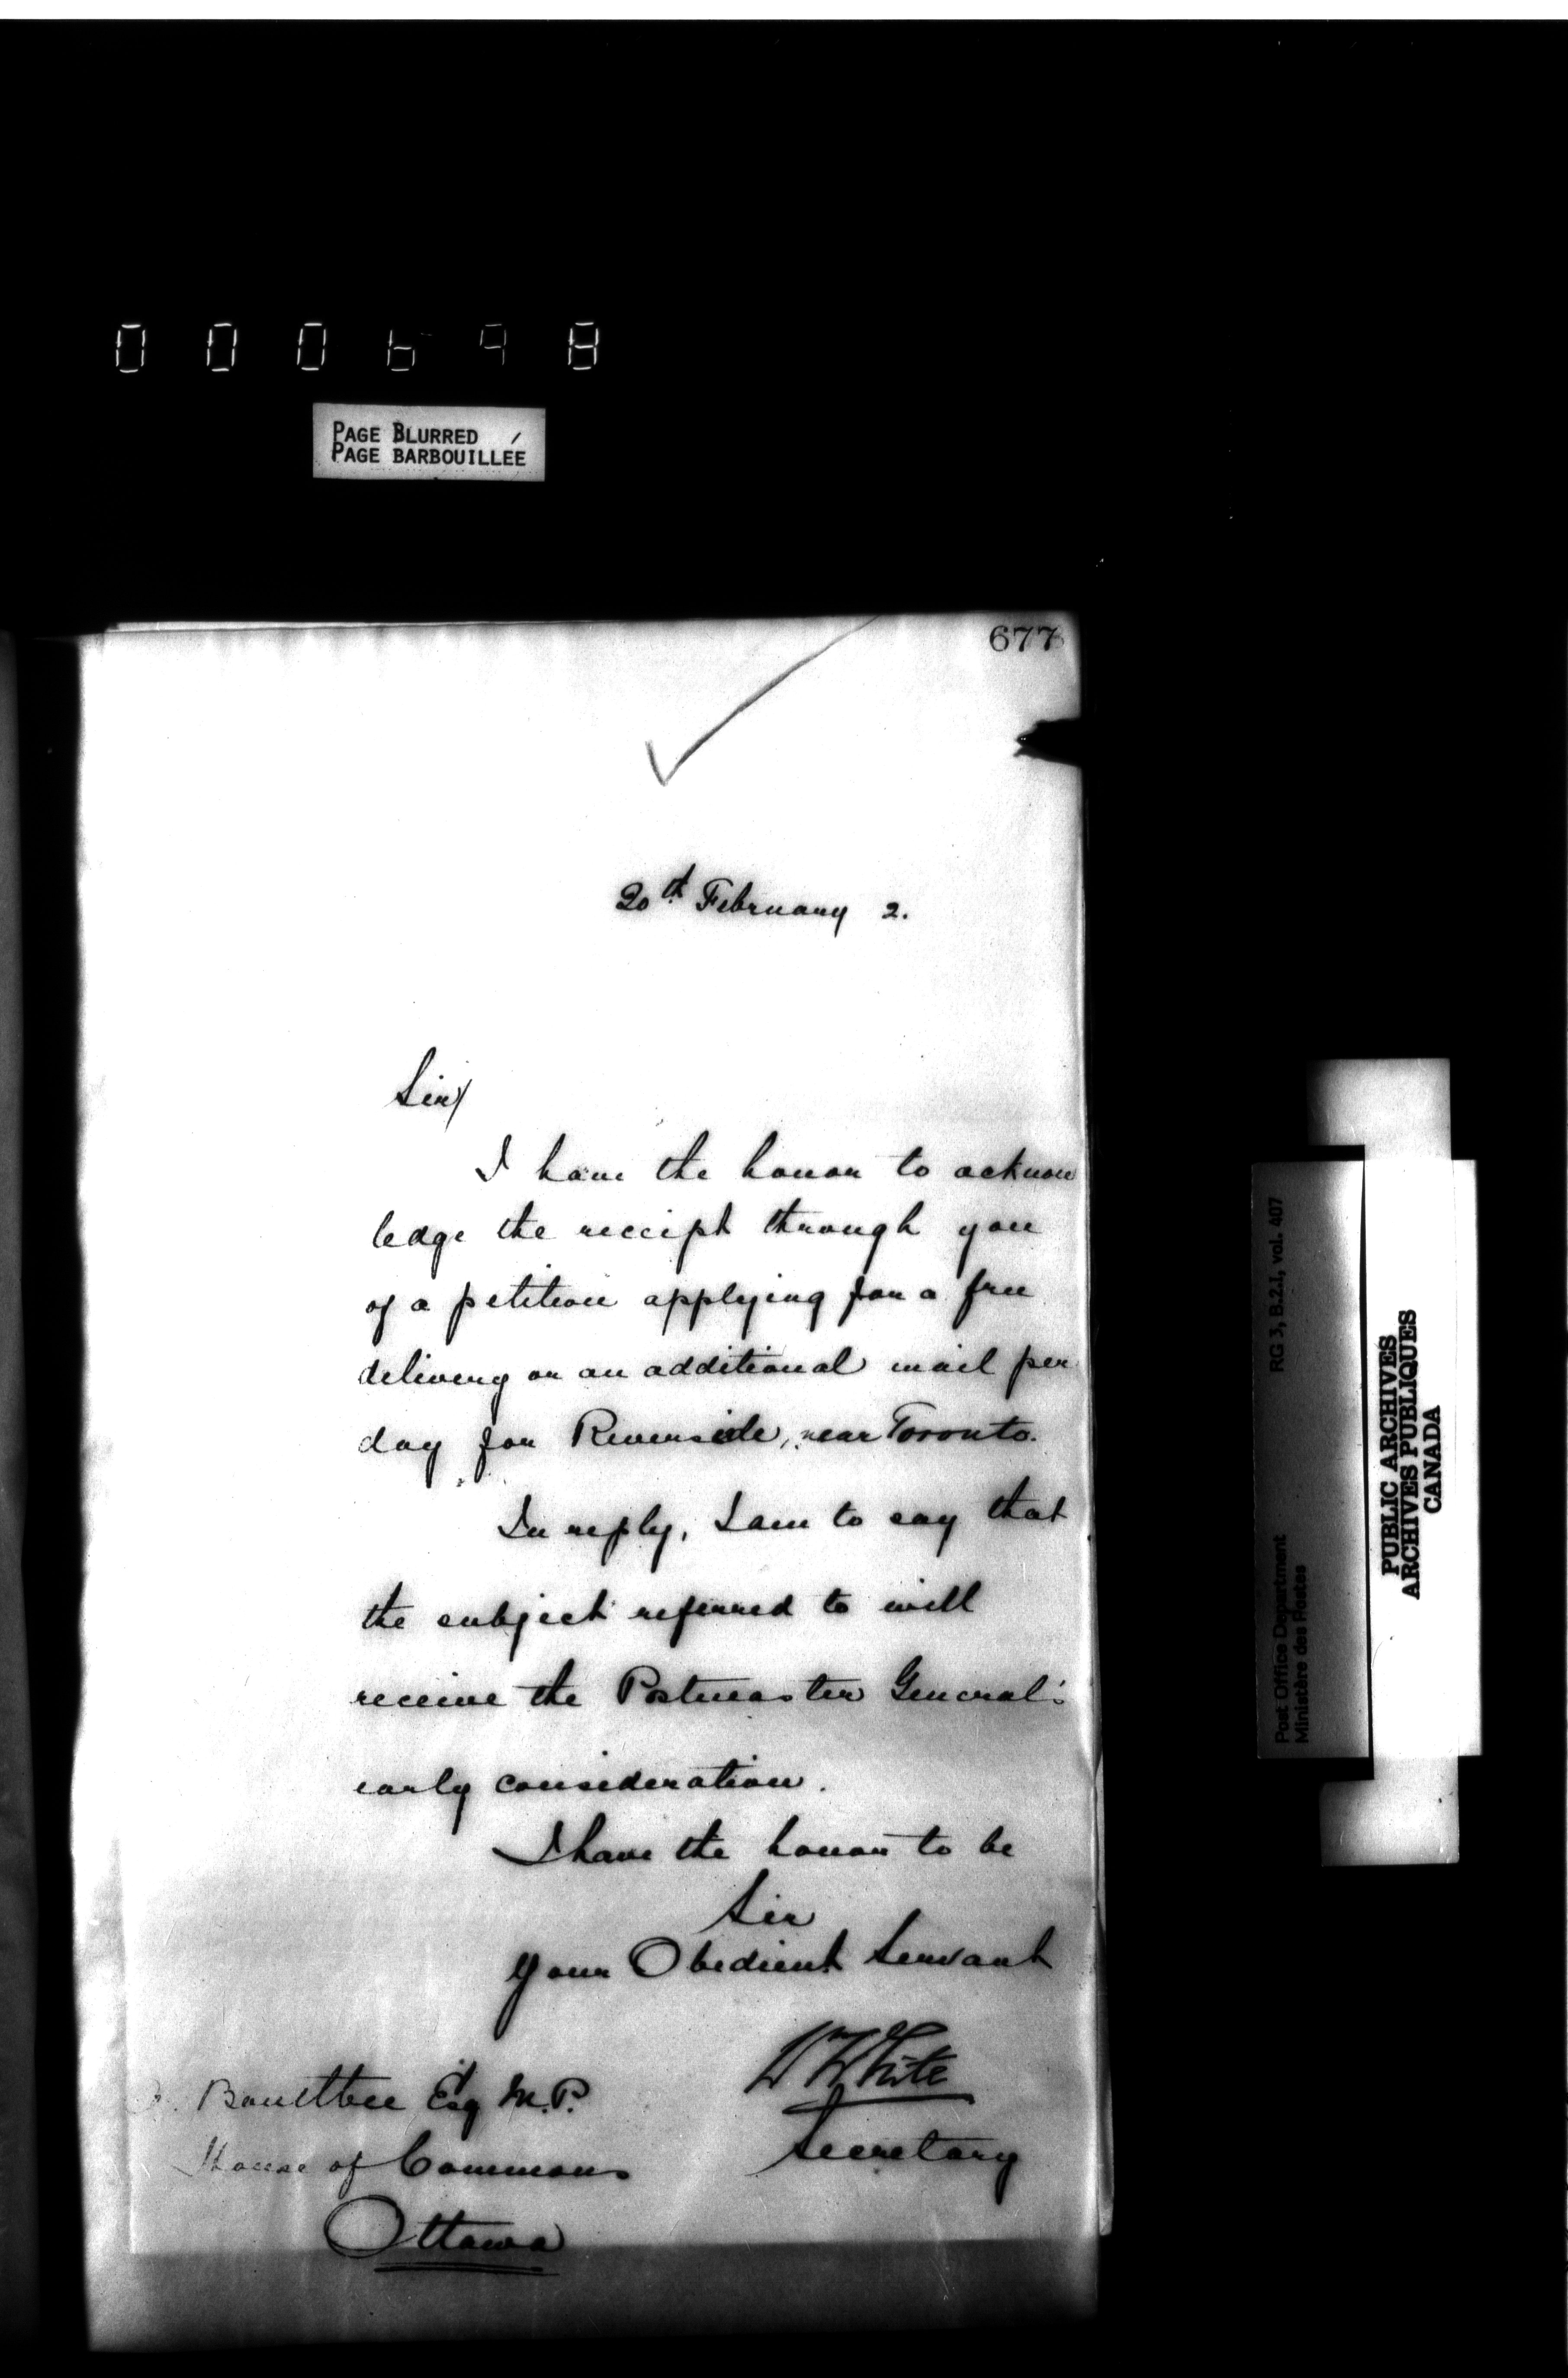 000698
PAGE BLURRED
PAGE BARBOUILLÉE
677
20th February 2.
Sir/
I have the honor to acknow
ledge the receipt through you
of a petition applying for a free
delivery or an additional mail per
day for Riverside, near Toronto.
In reply, I am to say that
the subject referred to will
receive the Postmaster General's
early consideration.
I have the honor to be
Sir
Your Obedient Servant
W White
Secretary
Boultbee Esq M.P.
House of Commons
Ottawa
RG 3, B.2.I, vol. 407
Post Office Department
Ministère des Postes
PUBLIC ARCHIVES
ARCHIVES PUBLIQUES
CANADA